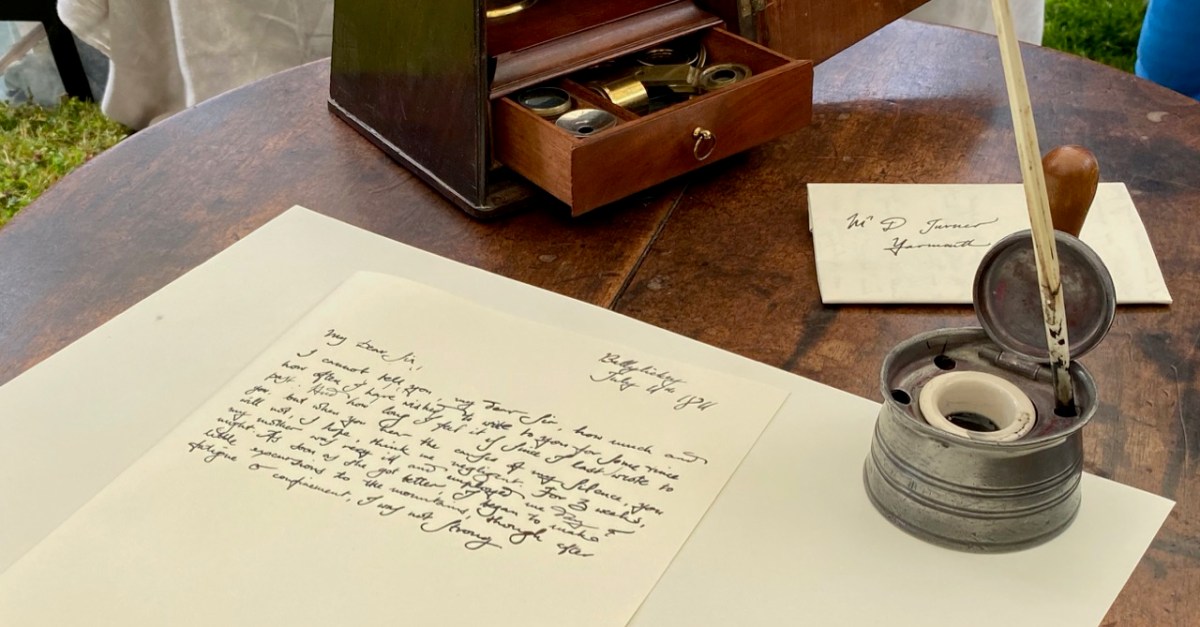 Mr D Turner
Yarmouth
Ballylickey
July 11th 1811
My Dear Sir,
I cannot tell you, my Dear Sir, how much and
how often I have wished to write to you for some time
past. And how long I feel it is since I last wrote to
you but when you hear the cause of my silence, you
will not, I hope, think me negligent. For 3 weeks,
my mother was very ill and employed me Day &
night. As soon as she got better I began to make
little excursions to the mountains, though after
fatigue & confinement, I was not strong